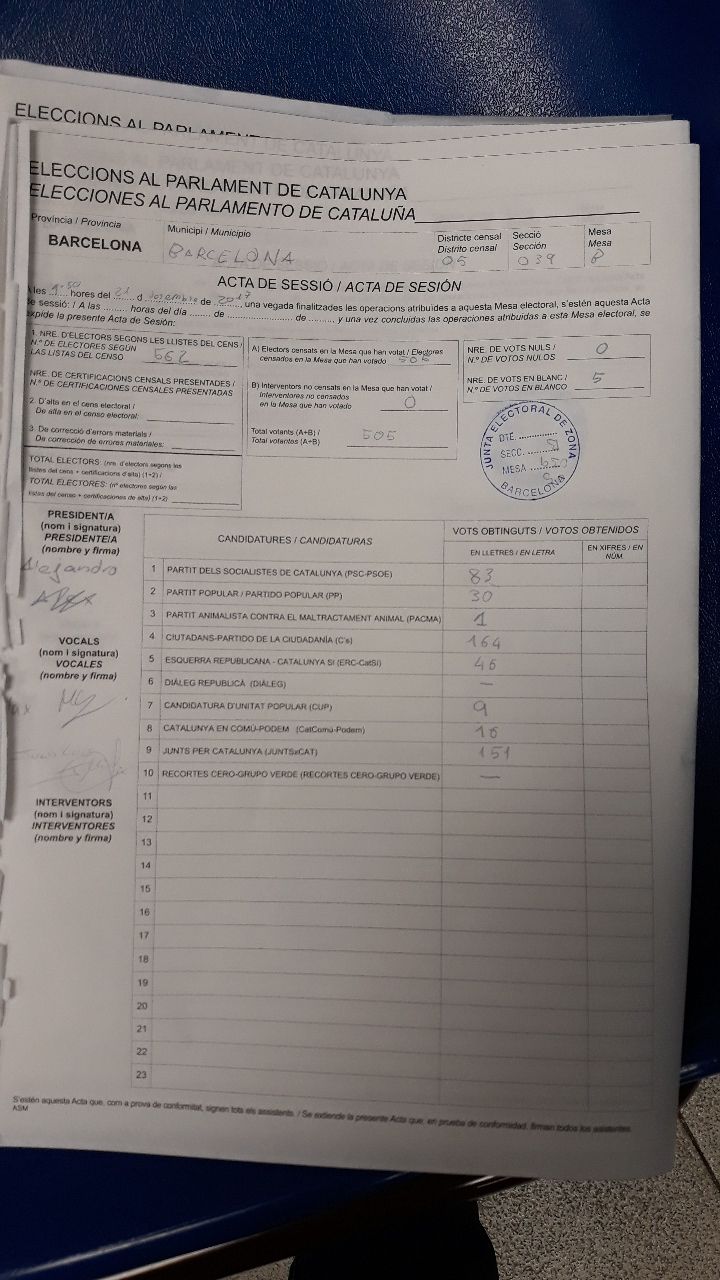 ELECCIONS AL PARLAMENT DE CATALUNYA
ELECCIONS AL PARLAMENT DE CATALUNYA
ELECCIONES AL PARLAMENTO DE CATALUÑA
Província / Provincia
BARCELONA
Municipi / Municipio
BARCELONA
Districte censal Secció Mesa
Distrito censal Sección Mesa
05 039 B
ACTA DE SESSIÓ / ACTA DE SESIÓN
A les hores del 21 d desembre de 2017 una vegada finalitzades les operacions atribuïdes a aquesta Mesa electoral, s'estén aquesta Acta
de sessió: / A las ......... horas del día ........ de ........................ de ......... y una vez concluidas las operaciones atribuidas a esta Mesa electoral, se
expide la presente Acta de Sesión:
1. NRE. D'ELECTORS SEGONS LES LLISTES DEL CENS /
N.º DE ELECTORES SEGÚN
LAS LISTAS DEL CENSO 662
NRE. DE CERTIFICACIONS CENSALS PRESENTADES /
N.º DE CERTIFICACIONES CENSALES PRESENTADAS
2. D'alta en el cens electoral /
De alta en el censo electoral:
3. De correcció d'errors materials /
De corrección de errores materiales:
TOTAL ELECTORS: (nre. d'electors segons les
llistes del cens + certificacions d'alta) (1+2) /
TOTAL ELECTORES: (nº electores según las
listas del censo + certificaciones de alta) (1+2)
A) Electors censats en la Mesa que han votat / Electores
censados en la Mesa que han votado 505
B) Interventors no censats en la Mesa que han votat /
Interventores no censados
en la Mesa que han votado 0
Total votants (A+B) /
Total votantes (A+B) 505
NRE. DE VOTS NULS /
N.º DE VOTOS NULOS 0
NRE. DE VOTS EN BLANC /
N.º DE VOTOS EN BLANCO 5
JUNTA ELECTORAL DE ZONA
DTE.
SECC.
MESA
BARCELONA
PRESIDENT/A
(nom i signatura)
PRESIDENTE/A
(nombre y firma)
Alejandro
VOCALS
(nom i signatura)
VOCALES
(nombre y firma)
INTERVENTORS
(nom i signatura)
INTERVENTORES
(nombre y firma)
CANDIDATURES / CANDIDATURAS
VOTS OBTINGUTS / VOTOS OBTENIDOS
EN LLETRES / EN LETRA
EN XIFRES / EN NÚM.
1 PARTIT DELS SOCIALISTES DE CATALUNYA (PSC-PSOE) 83
2 PARTIT POPULAR / PARTIDO POPULAR (PP) 30
3 PARTIT ANIMALISTA CONTRA EL MALTRACTAMENT ANIMAL (PACMA) 1
4 CIUTADANS-PARTIDO DE LA CIUDADANÍA (C's) 164
5 ESQUERRA REPUBLICANA - CATALUNYA SÍ (ERC-CatSí) 46
6 DIÀLEG REPUBLICÀ (DIÀLEG) —
7 CANDIDATURA D'UNITAT POPULAR (CUP) 9
8 CATALUNYA EN COMÚ-PODEM (CatComú-Podem) 16
9 JUNTS PER CATALUNYA (JUNTSxCAT) 151
10 RECORTES CERO-GRUPO VERDE (RECORTES CERO-GRUPO VERDE) —
11
12
13
14
15
16
17
18
19
20
21
22
23
S'estén aquesta Acta que, com a prova de conformitat, signen tots els assistents. / Se extiende la presente Acta que, en prueba de conformidad, firman todos los asistentes.
ASM